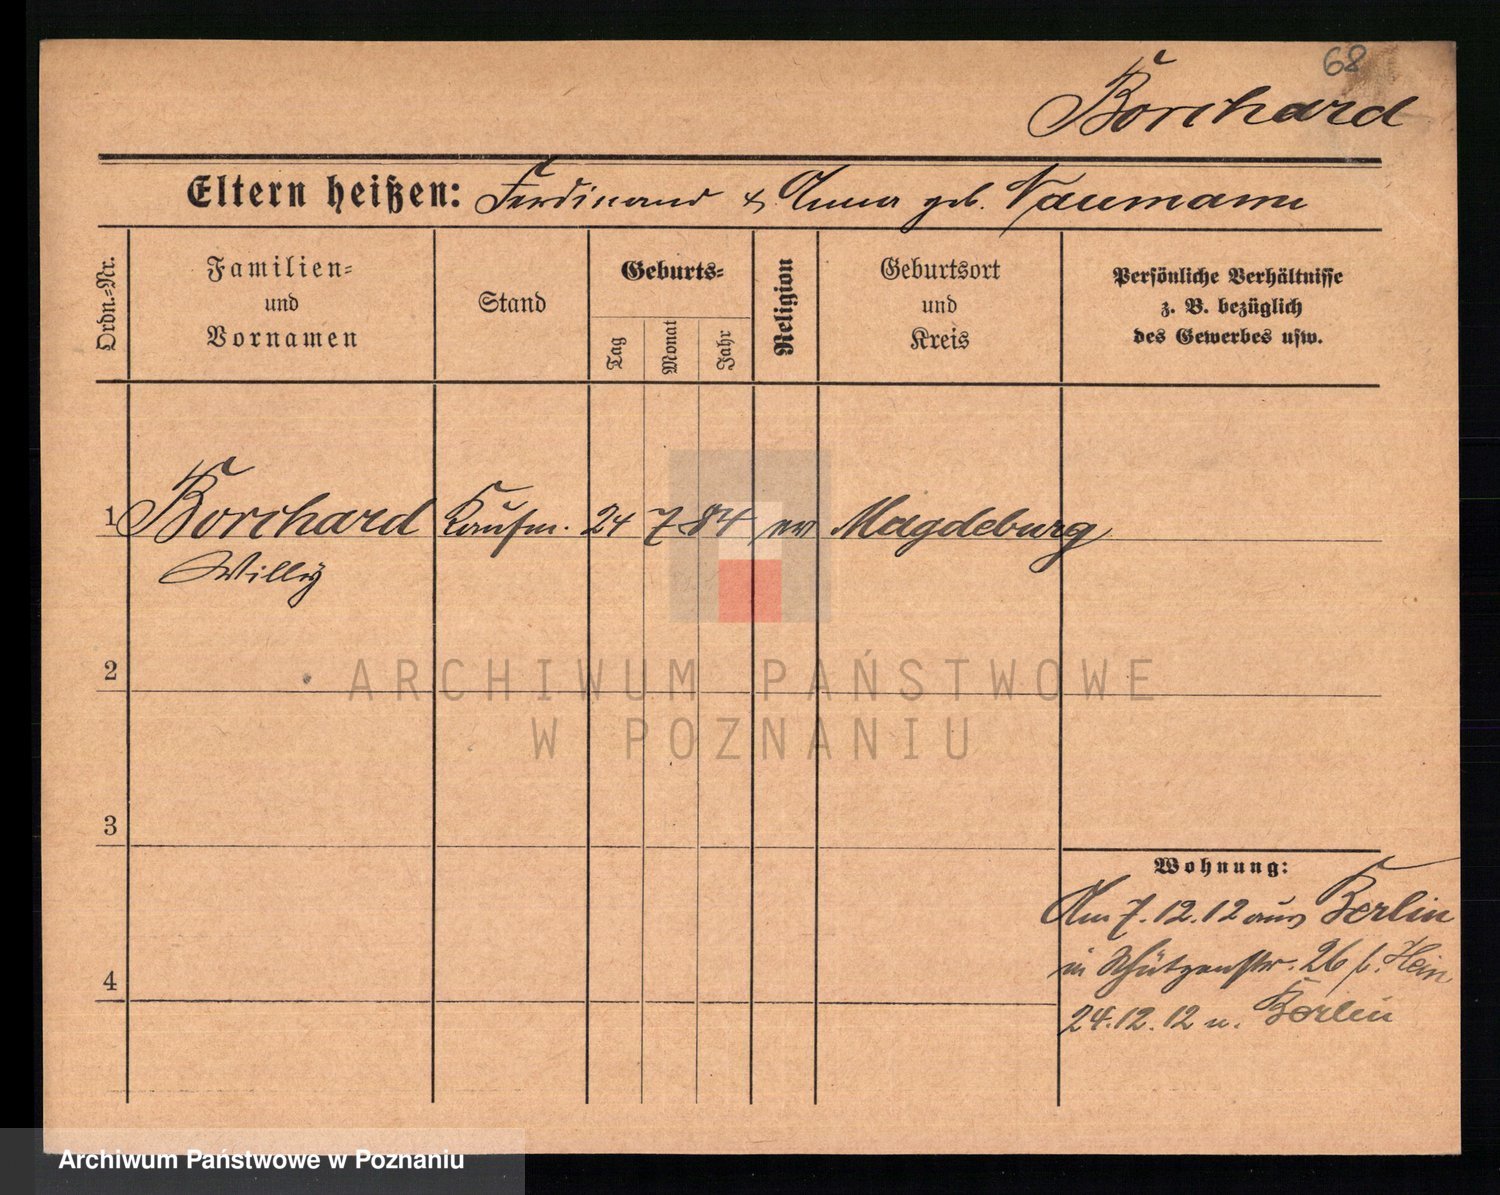 68
Borchard
Eltern heißen: Ferdinand & Anna geb. Naumann
Ordn.=Nr.
Familien=
und
Vornamen
Stand
Geburts=
Tag
Monat
Jahr
Religion
Geburtsort
und
Kreis
Persönliche Verhältnisse
z. B. bezüglich
des Gewerbes usw.
1 Borchard Kaufm. 24 7 84 ev Magdeburg
Willy
2
3
4
Wohnung:
Am 7.12.12 aus Berlin
in Schützenstr. 26 b. Hein
24.12.12 n. Berlin
ARCHIWUM PAŃSTWOWE
W POZNANIU
Archiwum Państwowe w Poznaniu